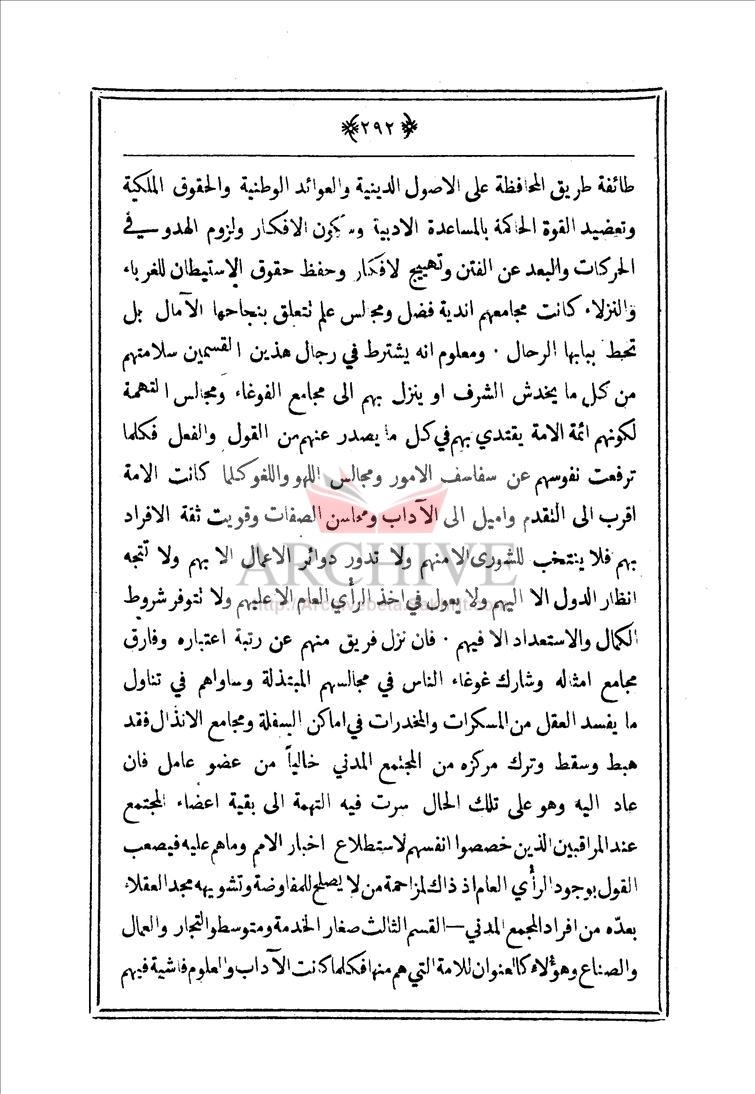 ﴿٢٩٢﴾
طائفة طريق المحافظة على الاصول الدينية والعوائد الوطنية والحقوق الملكية
وتعضيد القوة الحاكمة بالمساعدة الادبية وسكون الافكار ولزوم الهدو في
الحركات والبعد عن الفتن وتهييج لافكار وحفظ حقوق الاستيطان للغرباء
والنزلاء كانت مجامعهم اندية فضل ومجالس علم نتعلق بنجاحها الآمال بل
تحط ببابها الرحال ٠ ومعلوم انه يشترط في رجال هذين القسمين سلامتهم
من كل ما يخدش الشرف او ينزل بهم الى مجامع الغوغاء ومجالس التهمة
لكونهم ائمة الامة يقتدي بهم في كل ما يصدر عنهم من القول والفعل فكلما
ترفعت نفوسهم عن سفاسف الامور ومجالس اللهو واللغو كلما كانت الامة
اقرب الى التقدم واميل الى الآداب ومحاسن الصفات وقويت ثقة الافراد
بهم فلا ينتخب للشورى الا منهم ولا تدور دوائر الاعمال الا بهم ولا نتجه
ARCHIVE
انظار الدول الا اليهم ولا يعول في اخذ الرأي العام الا عليهم ولا نتوفر شروط
الكمال والاستعداد الا فيهم ٠ فان نزل فريق منهم عن رتبة اعتباره وفارق
مجامع امثاله وشارك غوغاء الناس في مجالسهم المبتذلة وساواهم في تناول
ما يفسد العقل من المسكرات والمخدرات في اماكن السفلة ومجامع الانذال فقد
هبط وسقط وترك مركزه من المجتمع المدني خالياً من عضو عامل فان
عاد اليه وهو على تلك الحال سرت فيه التهمة الى بقية اعضاء المجتمع
عند المراقبين الذين خصصوا انفسهم لاستطلاع اخبار الامم وماهم عليه فيصعب
القول بوجود الرأي العام اذ ذاك لمزاحمة من لا يصلح للمفاوضة وتشويهه مجد العقلاء
بعدّه من افراد المجمع المدني — القسم الثالث صغار الخدمة ومتوسطو التجار والعمال
والصناع وهؤلاء كالعنوان للامة التي هم منها فكلما كانت الآداب والعلوم فاشية فيهم